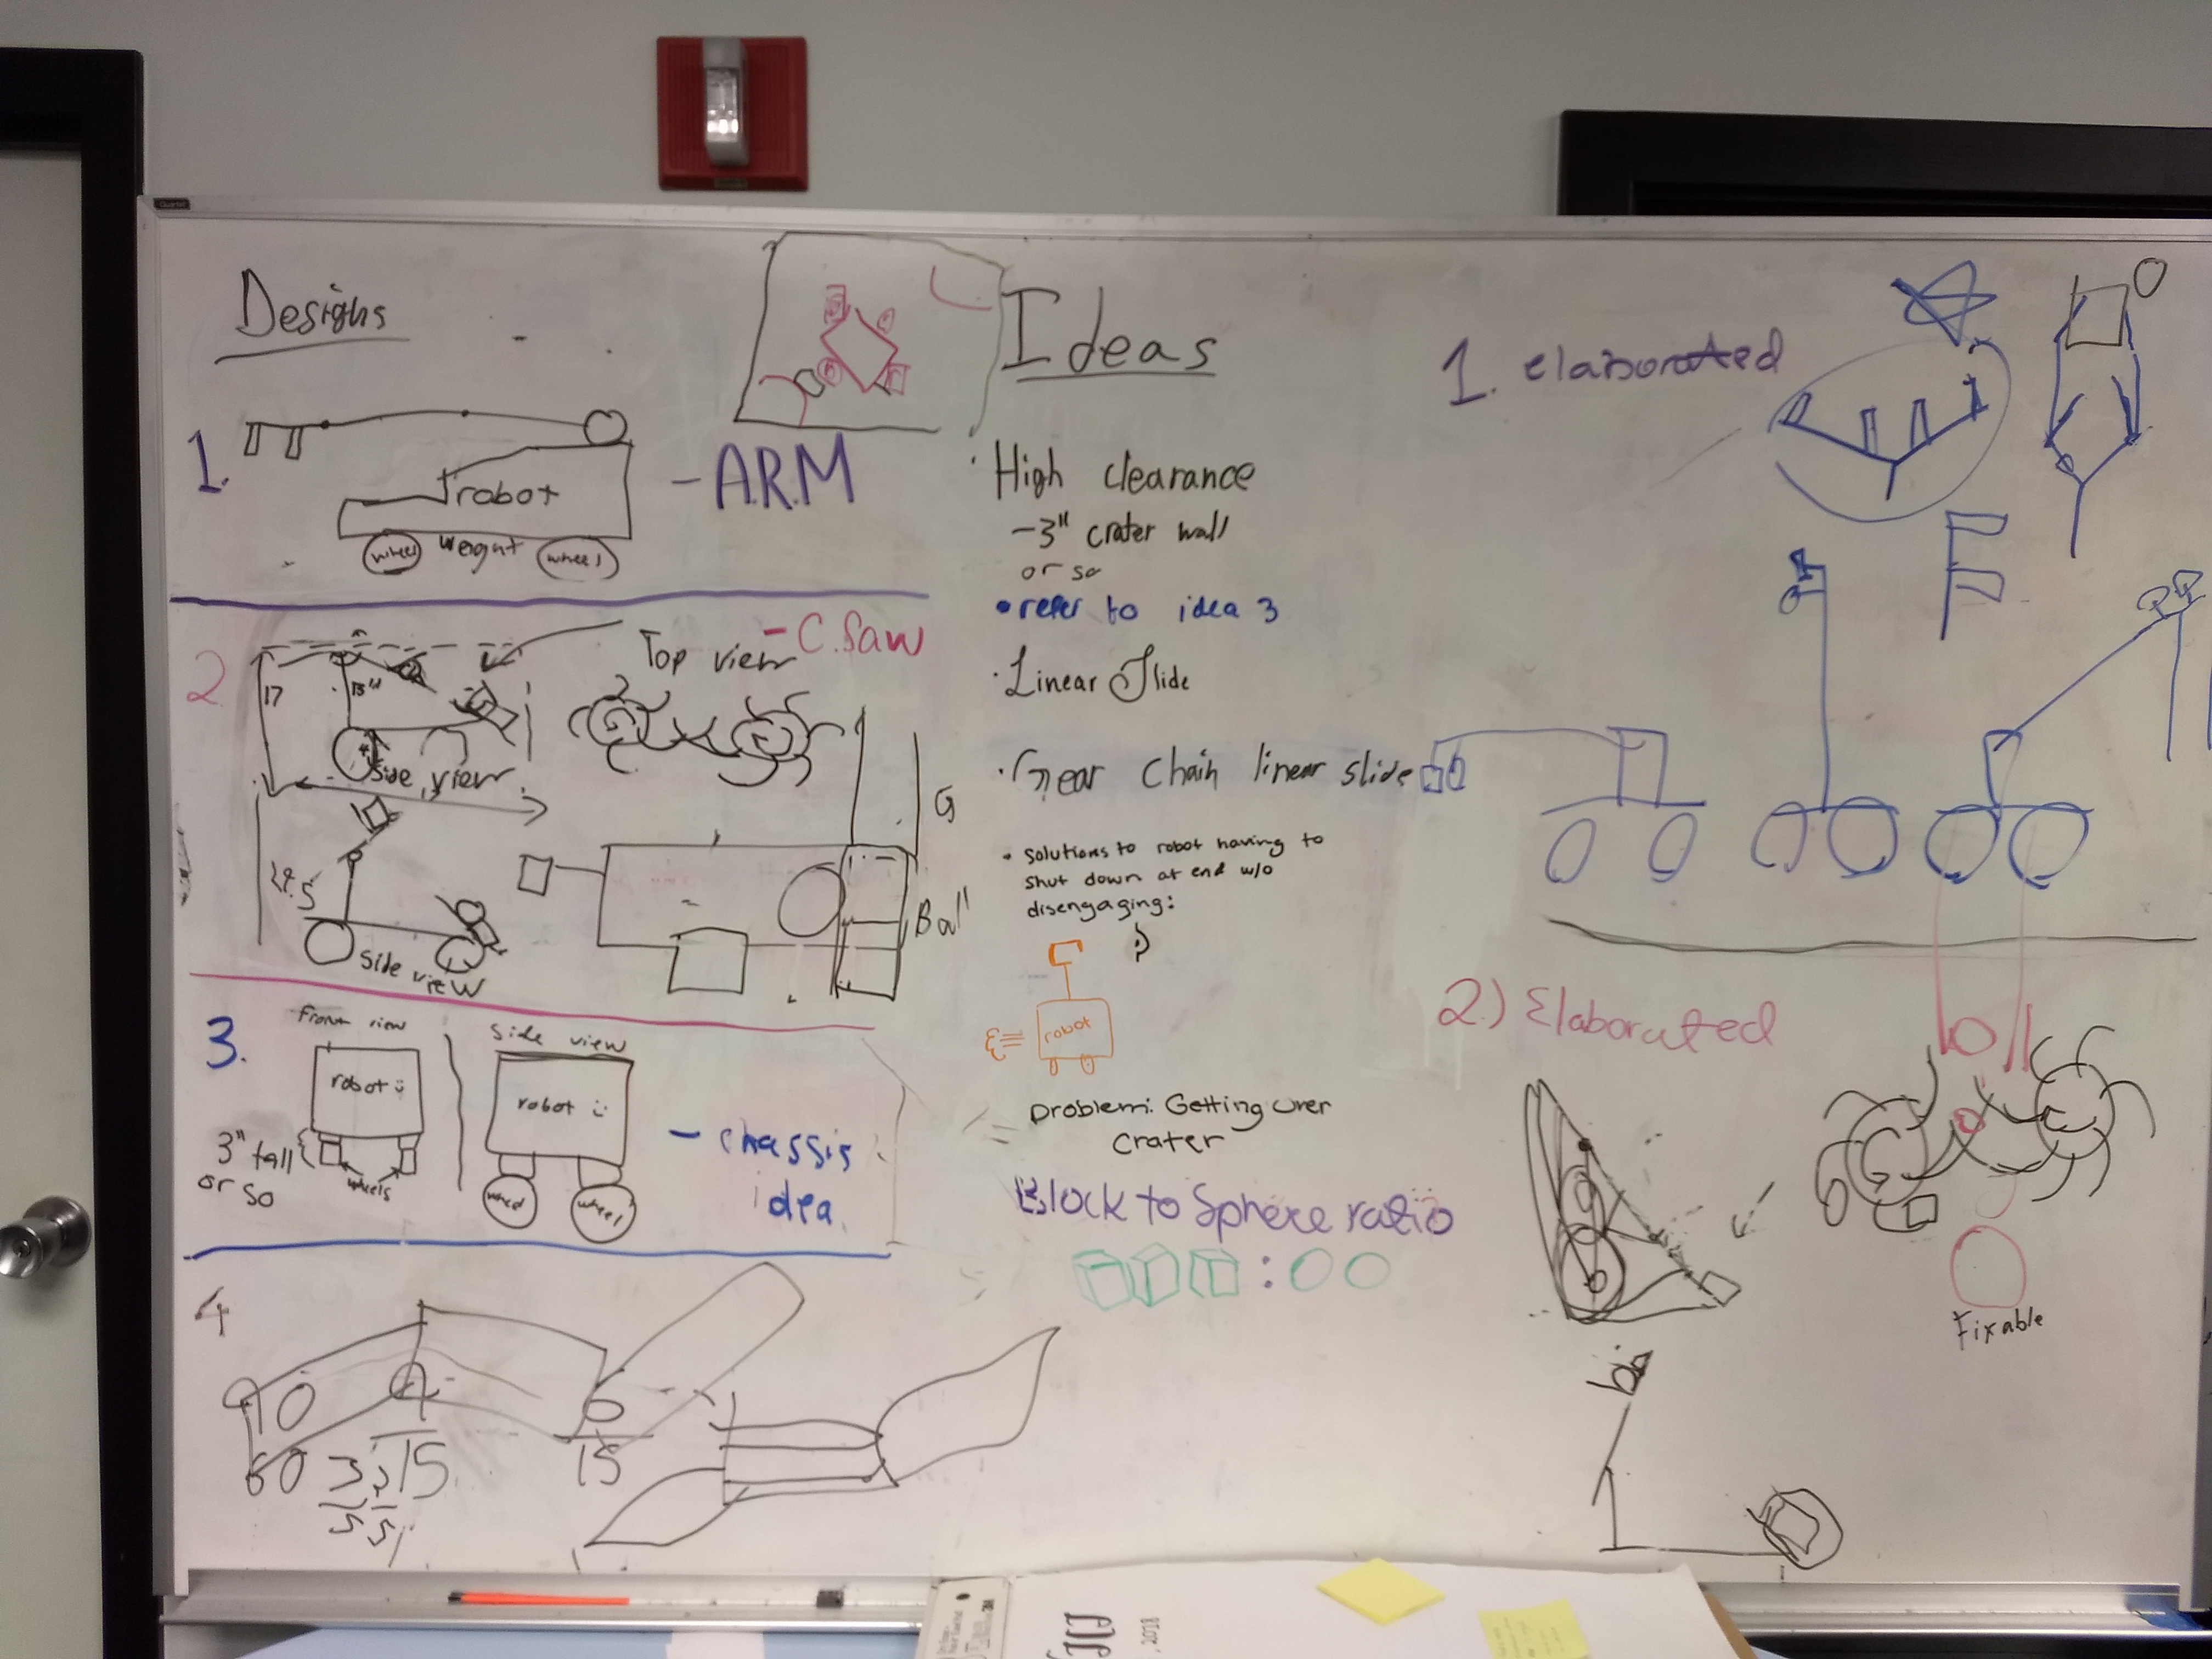 Designs
1.
robot
wheel weight wheel
- A.R.M
2
- C. Saw
Top view
17
15"
Side view
24.5
Side view
G
Ball
3.
Front view
robot
3" tall
or so
wheels
Side view
robot
wheel wheel
- chassis
idea
4
90
60
15
15
Ideas
· High clearance
- 3" crater wall
or so
• refer to idea 3
· Linear Slide
· Gear Chain linear slide
• Solutions to robot having to
shut down at end w/o
disengaging:
robot
Problem: Getting over
Crater
Block to Sphere ratio
:
1. elaborated
2.) Elaborated
Fixable
Quartet
2018